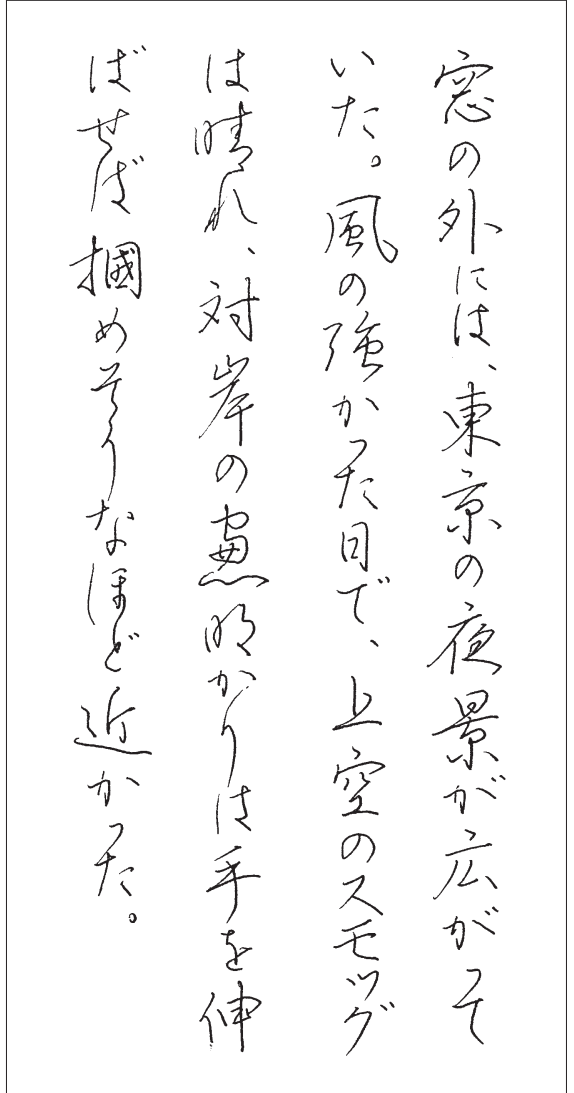 窓の外には、東京の夜景が広がって
いた。風の強かった日で、上空のスモッグ
は晴れ、対岸の窓明かりは手を伸
ばせば掴めそうなほど近かった。